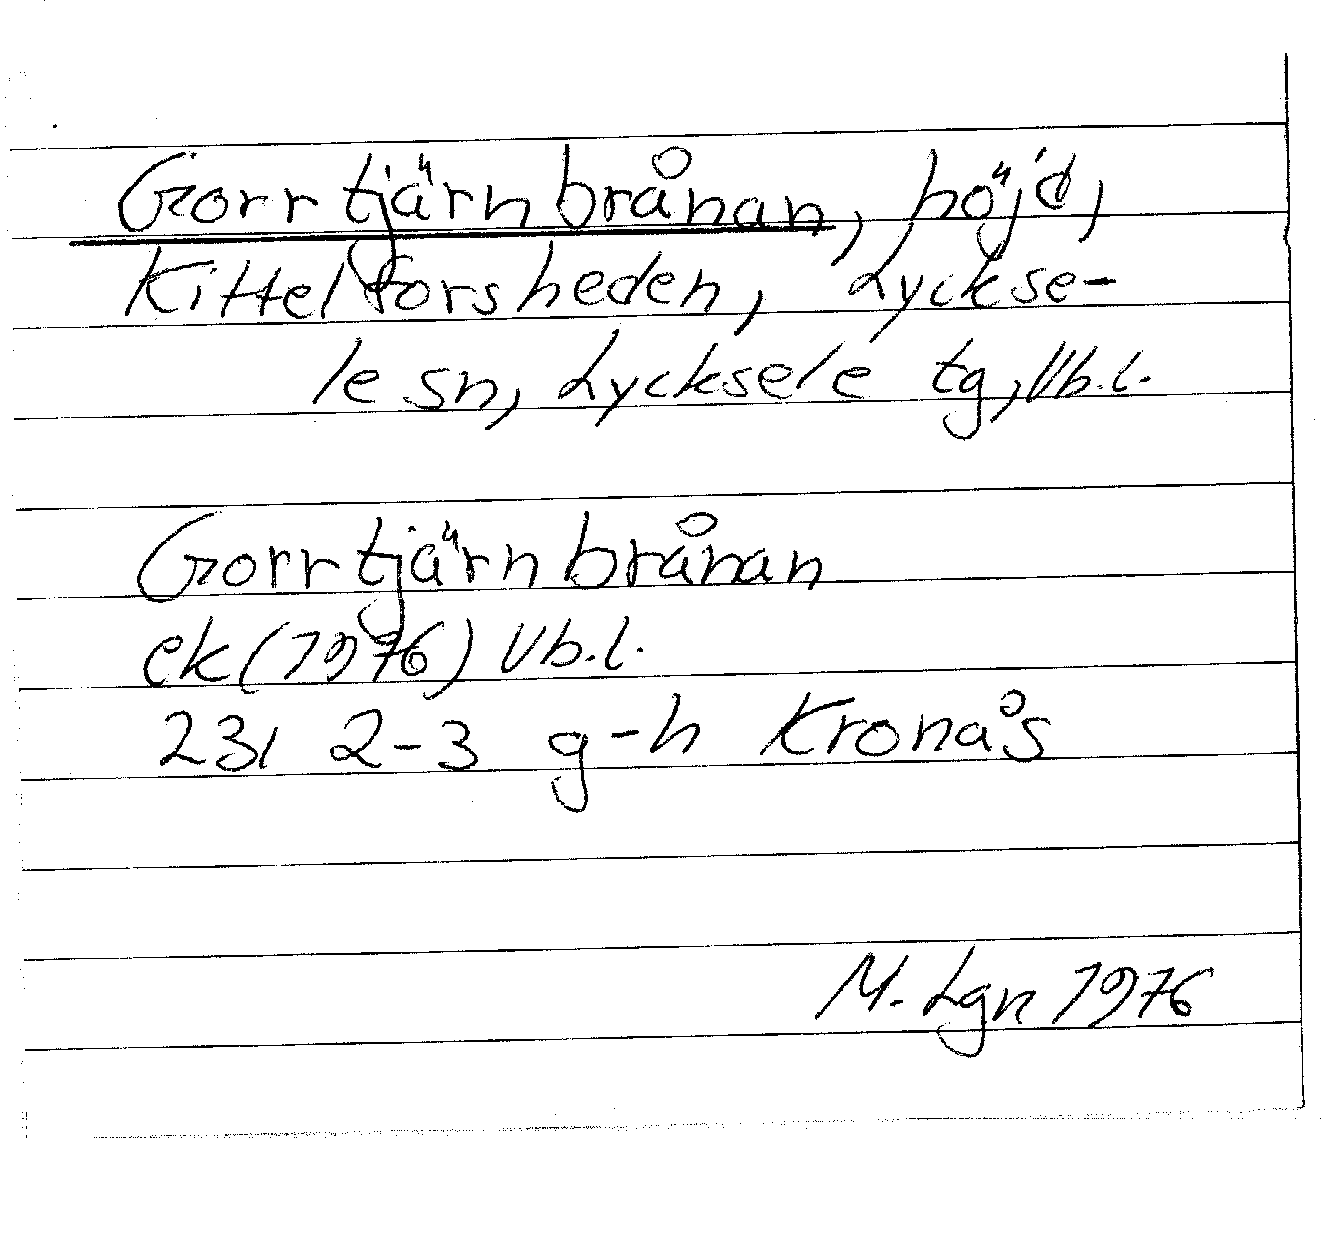 Gorrtjärnbrånan, höjd,
Kittelforsheden, Lyckse-
le sn, Lycksele tg, Vb.l.
Gorrtjärnbrånan
ek (1976) Vb.l.
23I 2-3 g-h Kronås
M. Lgn 1976